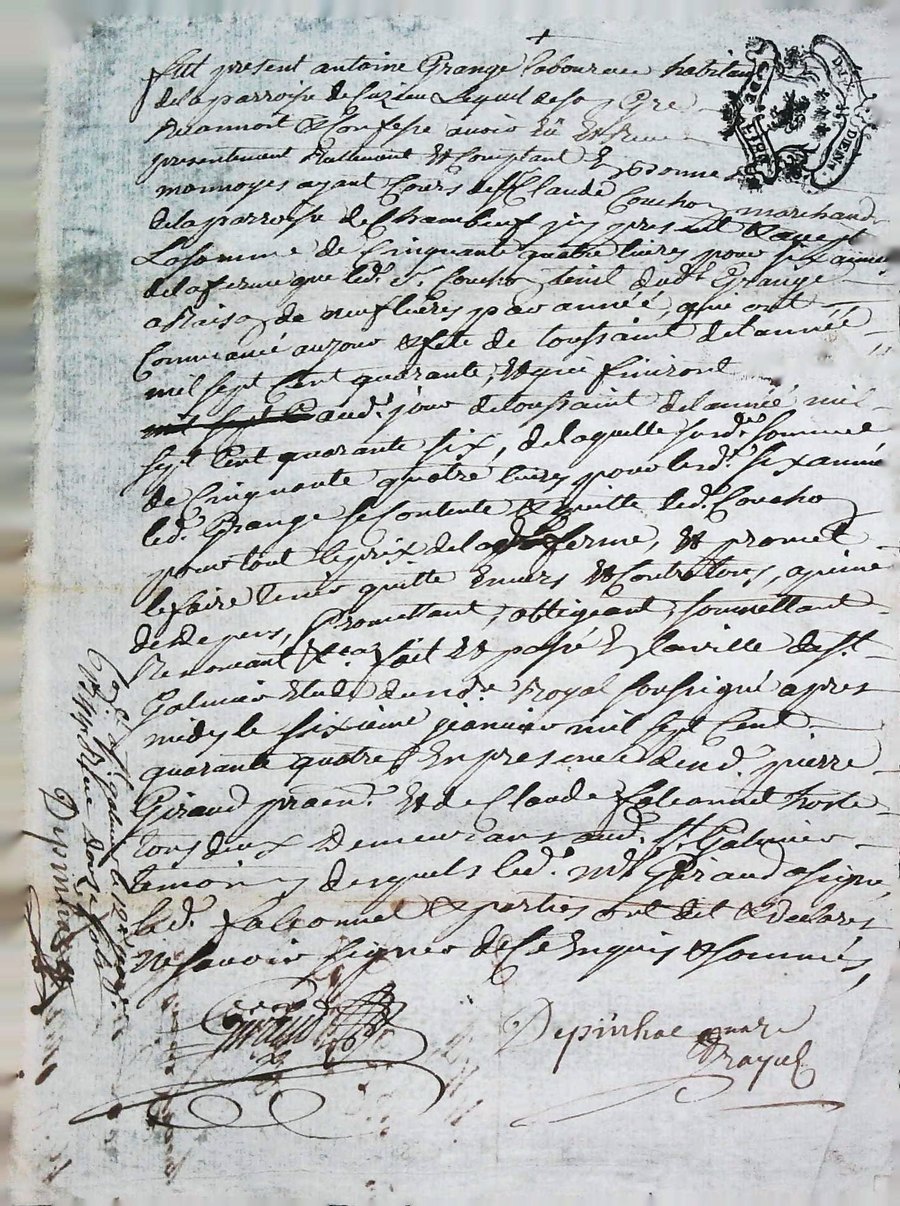 fut present antoine Grange laboureur habitant
de la parroisse de Cuzieu Lequel de son Gré
reconnoit & Confesse avoir eu et Receu
presentement Reallement et Comptant En bonnes
monnoyes ayant Cours de Sr. Claude Couchon marchand
de la parroisse de Chambeuf icy present & acceptant
La somme de Cinquante quatre livres pour six années
de la ferme que led. Sr. Couchon tient dudt. Grange
a Raison de neuf livres par année, que ont
Commancé au jour & fete de toussaint de lannée
mil sept Cent quarante, et qui finiront
aud. jour de toussaint de lannée mil
sept Cent quarante six, de laquelle susde. somme
de Cinquante quatre livres pour lesd. six années
led. Grange se Contente & quitte led. Couchon
pour tout le prix de lad. ferme, et promet
le faire tenir quitte Envers et Contre tous, a peine
de depens, Promettant, obligeant, soumettant
Renonceant &ca. fait et passé En la ville de St.
Galmier Etude du nore. Royal soussigné apres
midy le sixieme jeanvier mil sept Cent
quarante quatre En presence de Me. pierre
Giraud praen. et de Claude falconnet hoste
tous deux Demeurans aud. St. Galmier
temoins desquels led. me. Giraud a signé,
led. falconnet & parties ont dit & declaré
ne savoir signer de Ce Enquis & sommés,
Giraud
Depinhac nore
Royal
Con. a St. galmier le 12e janv.
Reçu douze sols
Depinhac
DIX DENI.